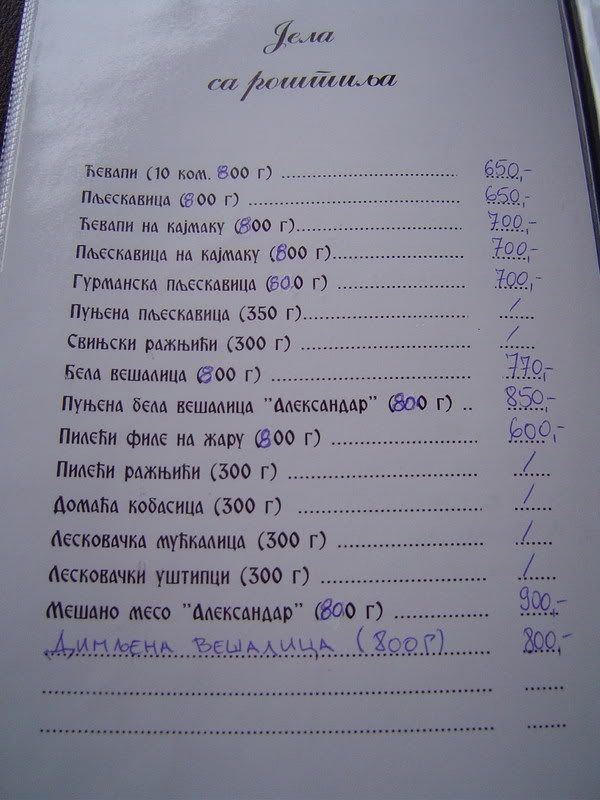 Јела
са роштиља
Ћевапи (10 ком. 800 г) .......... 650,-
Пљескавица (800 г) .......... 650,-
Ћевапи на кајмаку (800 г) .......... 700,-
Пљескавица на кајмаку (800 г) .......... 700,-
Гурманска пљескавица (800 г) .......... 700,-
Пуњена пљескавица (350 г) .......... /
Свињски ражњићи (300 г) .......... /
Бела вешалица (800 г) .......... 770,-
Пуњена бела вешалица "Александар" (800 г) .. 850,-
Пилећи филе на жару (800 г) .......... 600,-
Пилећи ражњићи (300 г) .......... /
Домаћа кобасица (300 г) .......... /
Лесковачка мућкалица (300 г) .......... /
Лесковачки уштипци (300 г) .......... /
Мешано месо "Александар" (800 г) .......... 900,-
Димљена вешалица (800 г) 800,-